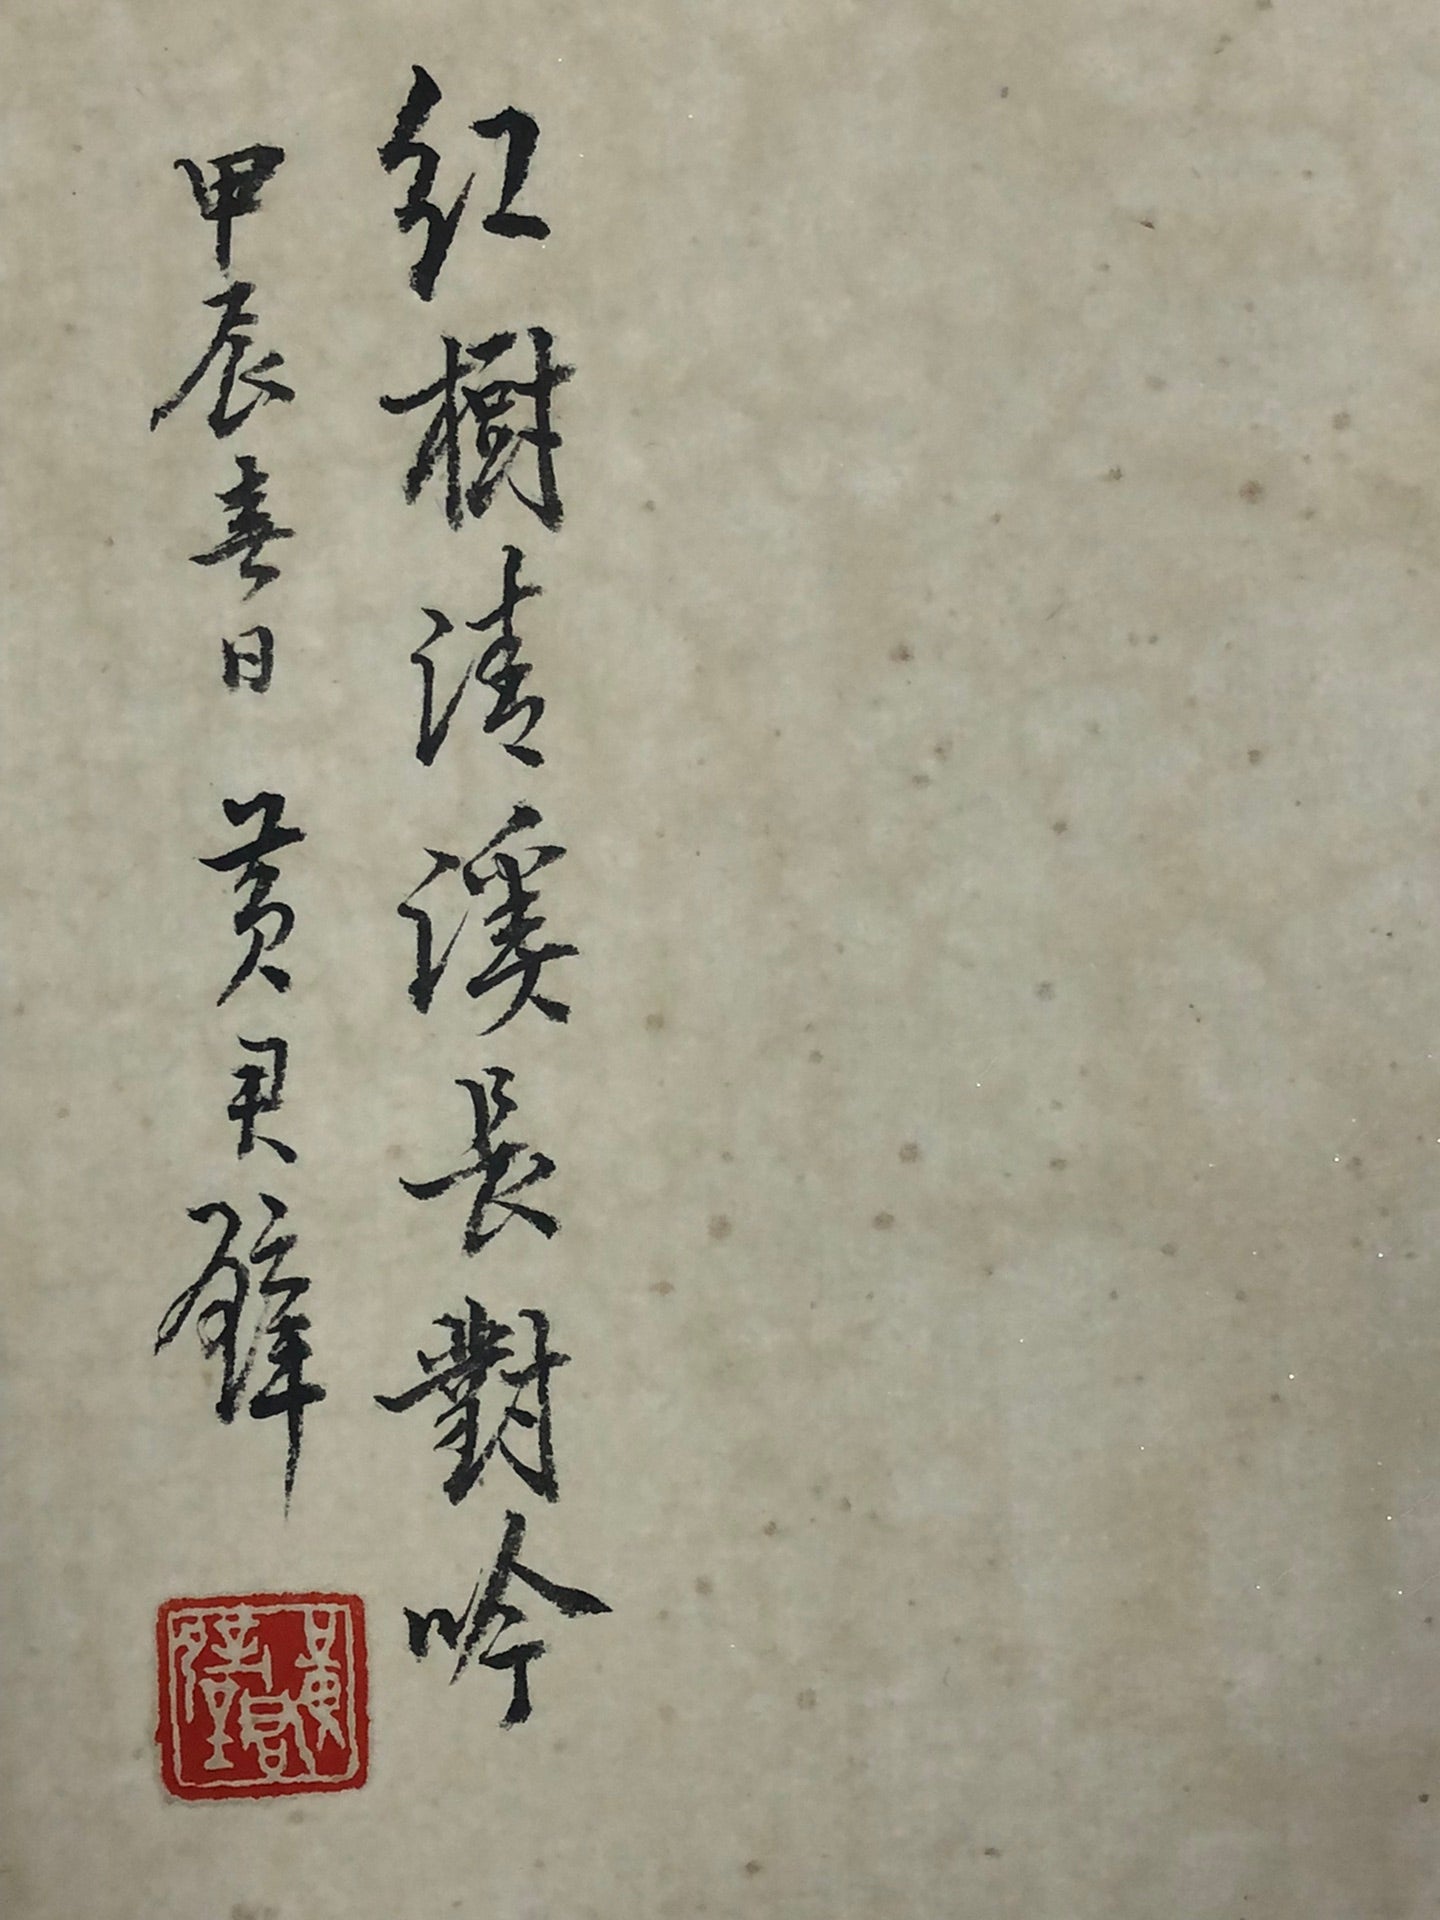 紅樹清溪長對吟
甲辰春日 黃君璧
黃君璧